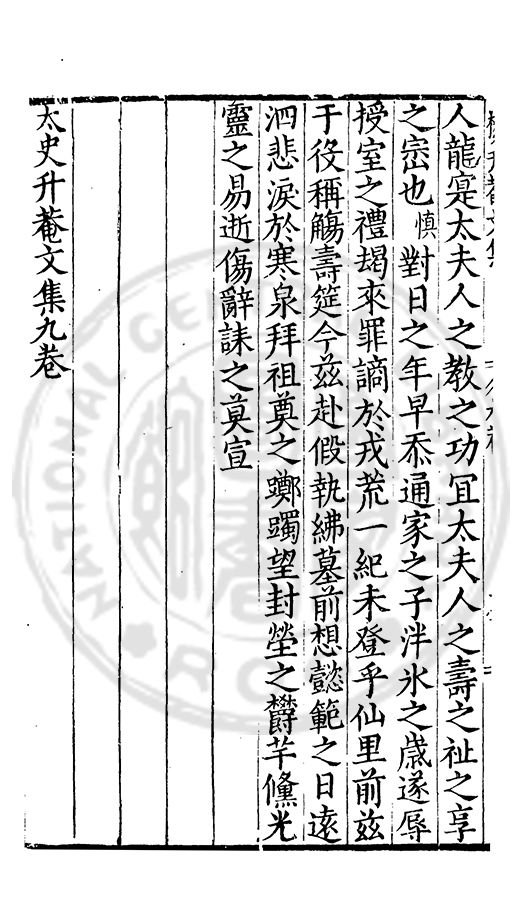 人龍寔太夫人之教之功宜太夫人之壽之祉之享
之崈也慎對日之年早忝通家之子泮氷之歲遂辱
授室之禮朅來罪謫於戎荒一紀未登乎仙里前兹
于役稱觴壽筵今兹赴假執紼墓前想懿範之日逺
泗悲淚於寒泉拜祖奠之躑躅望封塋之欝芊儵光
靈之易逝傷辭誄之莫宣
太史升菴文集九巻